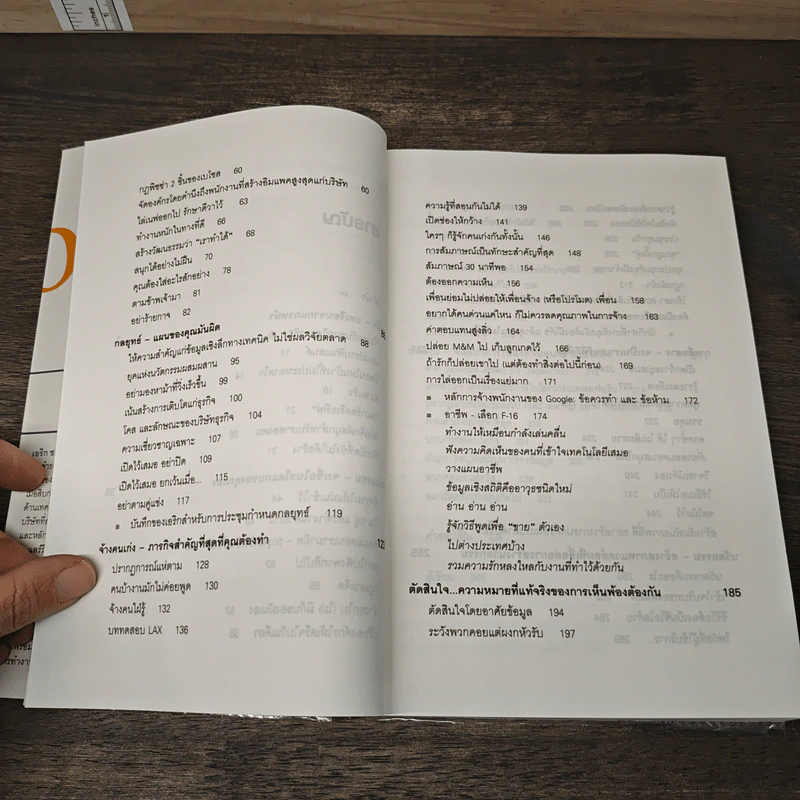 inches
1
กฎพิซซ่า 2 ชิ้นของเบโซส 60
จัดองค์กรโดยคำนึงถึงพนักงานที่สร้างอิมแพคสูงสุดแก่บริษัท 60
ไล่เนฟออกไป รักษาดีวาไว้ 63
ทำงานหนักในทางที่ดี 66
สร้างวัฒนธรรมว่า "เราทำได้" 68
สนุกได้อย่างไม่ฝืน 70
คุณต้องใส่อะไรสักอย่าง 78
ตามข้าพเจ้ามา 81
อย่าร้ายกาจ 82
กลยุทธ์ – แผนของคุณมันผิด
ให้ความสำคัญแก่ข้อมูลเชิงลึกทางเทคนิค ไม่ใช่ผลวิจัยตลาด 88
ยุคแห่งนวัตกรรมผสมผสาน 95
อย่ามองหาม้าที่วิ่งเร็วขึ้น 99
เน้นสร้างการเติบโตแก่ธุรกิจ 100
โคส และลักษณะของบริษัทธุรกิจ 104
ความเชี่ยวชาญเฉพาะ 107
เปิดไว้เสมอ อย่าปิด 109
เปิดไว้เสมอ ยกเว้นเมื่อ... 115
อย่าตามคู่แข่ง 117
■ บันทึกของเอริกสำหรับการประชุมกำหนดกลยุทธ์ 119
จ้างคนเก่ง – ภารกิจสำคัญที่สุดที่คุณต้องทำ
ปรากฏการณ์แห่ตาม 128
คนบ้างานมักไม่ค่อยพูด 130
จ้างคนใฝ่รู้ 132
บททดสอบ LAX 136
ความรู้ที่สอนกันไม่ได้ 139
เปิดช่องให้กว้าง 141
ใครๆ ก็รู้จักคนเก่งกันทั้งนั้น 146
การสัมภาษณ์เป็นทักษะสำคัญที่สุด 148
สัมภาษณ์ 30 นาทีพอ 154
ต้องออกความเห็น 156
เพื่อนย่อมไม่ปล่อยให้เพื่อนจ้าง (หรือโปรโมต) เพื่อน 158
อยากได้คนด่วนแค่ไหน ก็ไม่ควรลดคุณภาพในการจ้าง 163
ค่าตอบแทนสูงลิ่ว 164
ปล่อย M&M ไป เก็บลูกเกดไว้ 166
ถ้ารักก็ปล่อยเขาไป (แต่ต้องทำสิ่งต่อไปนี้ก่อน) 169
การไล่ออกเป็นเรื่องแย่มาก 171
■ หลักการจ้างพนักงานของ Google: ข้อควรทำ และ ข้อห้าม 172
■ อาชีพ - เลือก F-16 174
ทำงานให้เหมือนกำลังเล่นคลื่น
ฟังความคิดเห็นของคนที่เข้าใจเทคโนโลยีเสมอ
วางแผนอาชีพ
ข้อมูลเชิงสถิติคืออาวุธชนิดใหม่
อ่าน อ่าน อ่าน
รู้จักวิธีพูดเพื่อ "ขาย" ตัวเอง
ไปต่างประเทศบ้าง
รวมความรักหลงใหลกับงานที่ทำไว้ด้วยกัน
ตัดสินใจ...ความหมายที่แท้จริงของการเห็นพ้องต้องกัน 185
ตัดสินใจโดยอาศัยข้อมูล 194
ระวังพวกคอยแต่ผงกหัวรับ 197